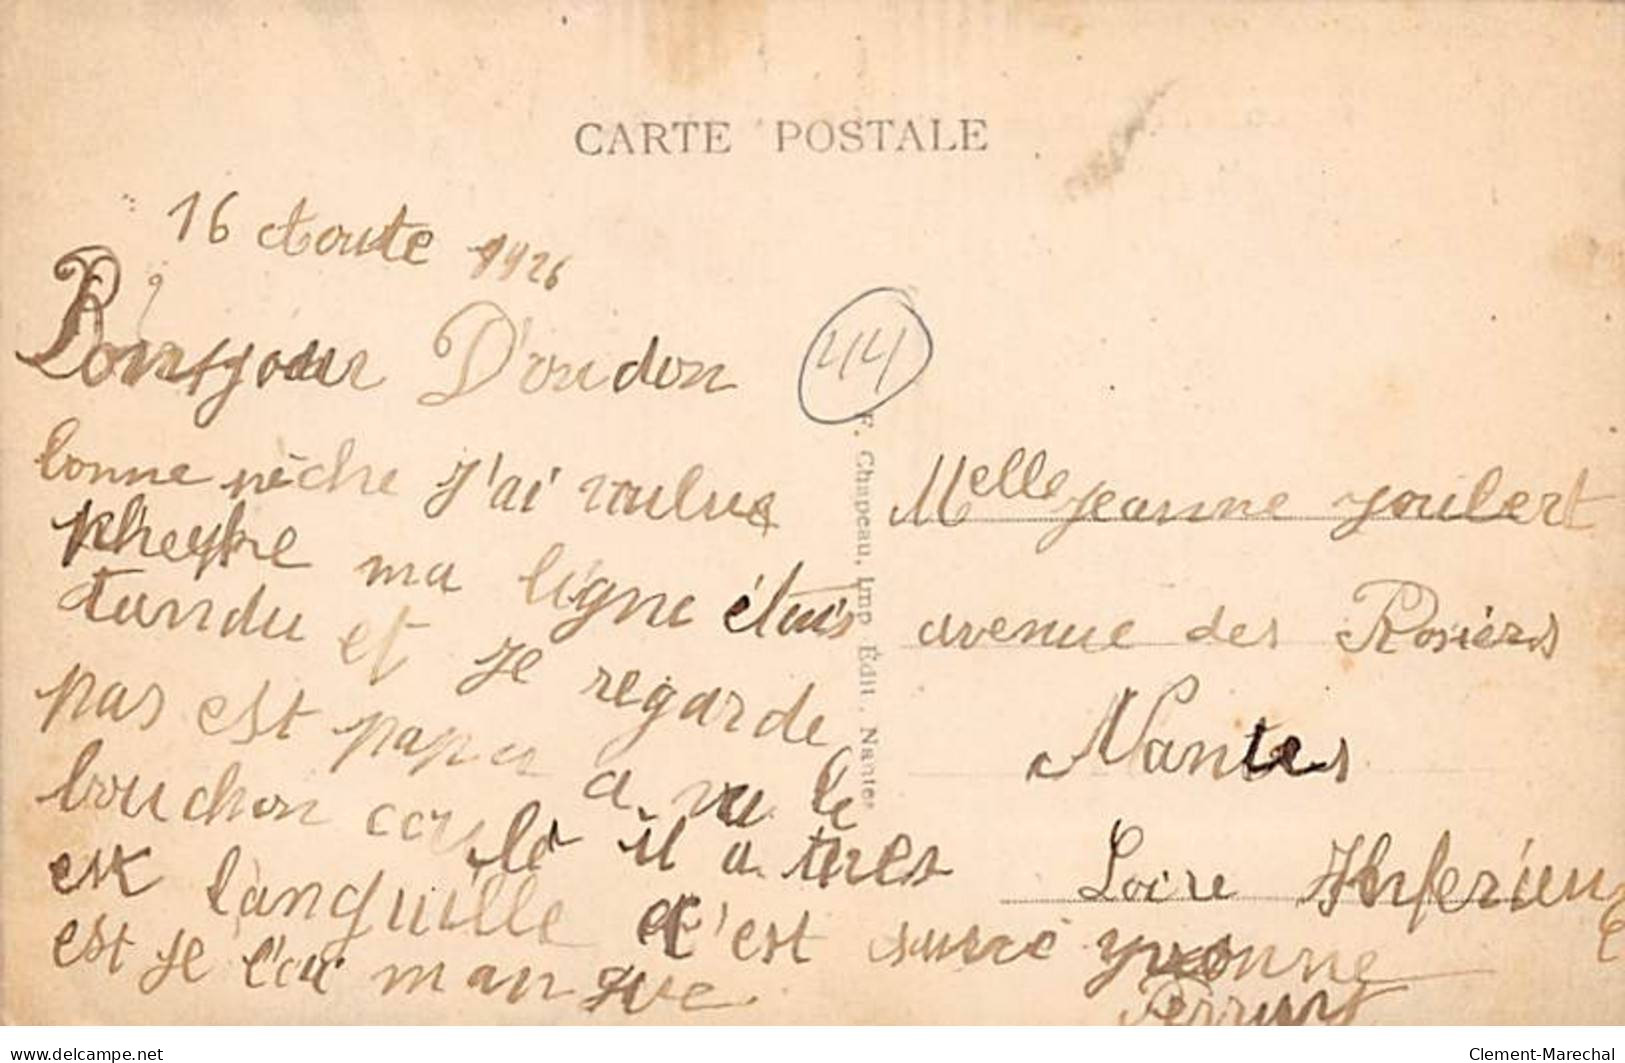 CARTE POSTALE
16 Aoute 1926
Bonsjour D'oudon
bonne pêche J'ai voulue
ma ligne étais
tandu et je regarde
pas est papa a vu le
bouchon coulé il a tires
est l'anguille c'est
est je l'ai mangue
44
F. Chapeau, Imp. Édit. Nantes
Melle Jeanne Joubert
avenue des Rosiers
Nantes
Loire Inferieure
yvonne
www.delcampe.net
Clement-Marechal